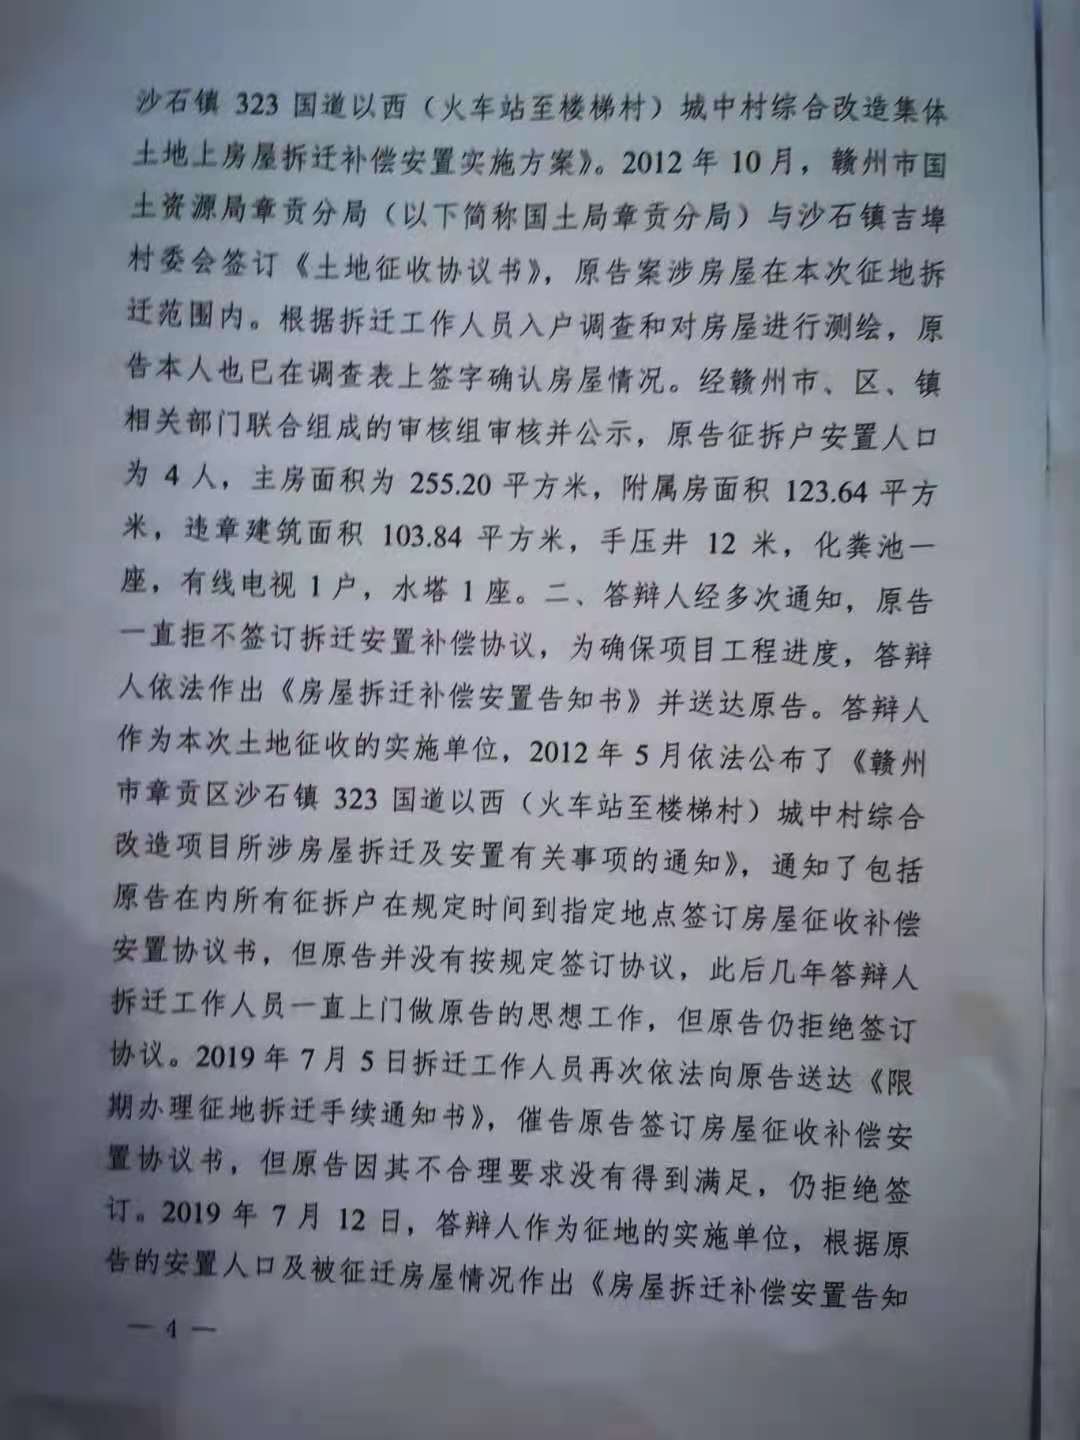 沙石镇 323 国道以西（火车站至楼梯村）城中村综合改造集体
土地上房屋拆迁补偿安置实施方案》。2012 年 10 月，赣州市国
土资源局章贡分局（以下简称国土局章贡分局）与沙石镇吉埠
村委会签订《土地征收协议书》，原告案涉房屋在本次征地拆
迁范围内。根据拆迁工作人员入户调查和对房屋进行测绘，原
告本人也已在调查表上签字确认房屋情况。经赣州市、区、镇
相关部门联合组成的审核组审核并公示，原告征拆户安置人口
为 4 人，主房面积为 255.20 平方米，附属房面积 123.64 平方
米，违章建筑面积 103.84 平方米，手压井 12 米，化粪池一
座，有线电视 1 户，水塔 1 座。二、答辩人经多次通知，原告
一直拒不签订拆迁安置补偿协议，为确保项目工程进度，答辩
人依法作出《房屋拆迁补偿安置告知书》并送达原告。答辩人
作为本次土地征收的实施单位，2012 年 5 月依法公布了《赣州
市章贡区沙石镇 323 国道以西（火车站至楼梯村）城中村综合
改造项目所涉房屋拆迁及安置有关事项的通知》，通知了包括
原告在内所有征拆户在规定时间到指定地点签订房屋征收补偿
安置协议书，但原告并没有按规定签订协议，此后几年答辩人
拆迁工作人员一直上门做原告的思想工作，但原告仍拒绝签订
协议。2019 年 7 月 5 日拆迁工作人员再次依法向原告送达《限
期办理征地拆迁手续通知书》，催告原告签订房屋征收补偿安
置协议书，但原告因其不合理要求没有得到满足，仍拒绝签
订。2019 年 7 月 12 日，答辩人作为征地的实施单位，根据原
告的安置人口及被征迁房屋情况作出《房屋拆迁补偿安置告知
— 4 —